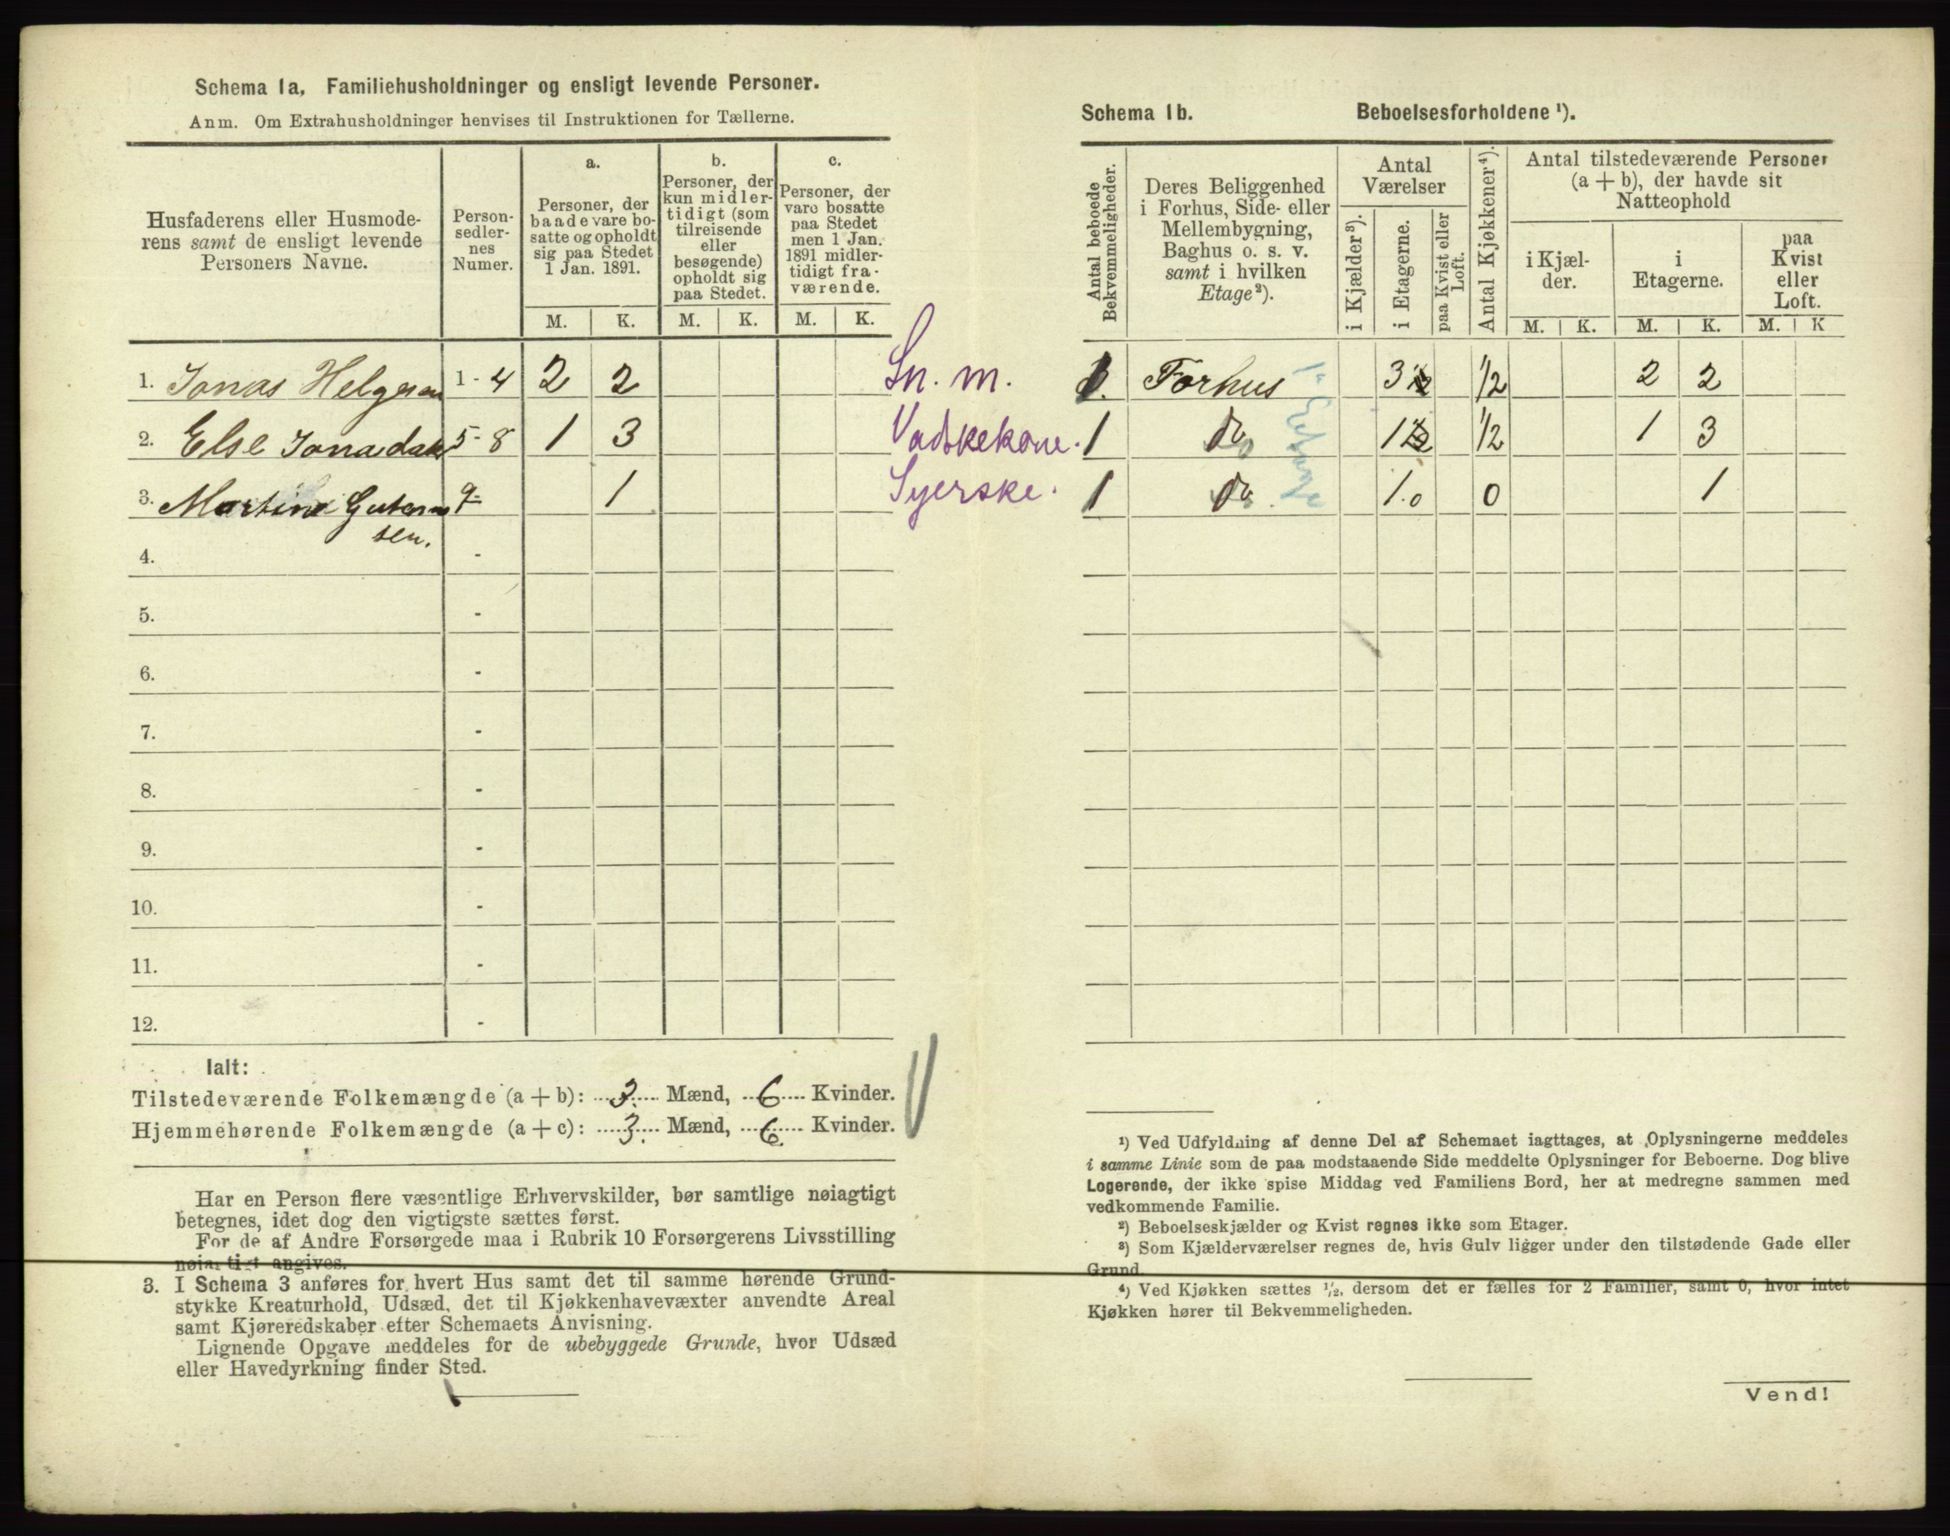 Schema 1a, Familiehusholdninger og ensligt levende Personer.
Anm. Om Extrahusholdninger henvises til Instruktionen for Tællerne.
Husfaderens eller Husmode-
rens samt de ensligt levende
Personers Navne.
Person-
sedler-
nes
Numer.
a.
Personer, der
baade vare bo-
satte og opholdt
sig paa Stedet
1 Jan. 1891.
b.
Personer, der
kun midler-
tidigt (som
tilreisende
eller
besøgende)
opholdt sig
paa Stedet.
c.
Personer, der
vare bosatte
paa Stedet
men 1 Jan.
1891 midler-
tidigt fra-
værende.
M. K. M. K. M. K.
1. Jonas Helgesen 1 - 4 2 2 Sn. m.
2. Else 5 - 8 1 3 Vadskekone.
3. Martine 9 - 1 Syerske.
sen.
4. -
5. -
6. -
7. -
8. -
9. -
10. -
11. -
12. -
Ialt:
Tilstedeværende Folkemængde (a + b): 3. Mænd, 6 Kvinder.
Hjemmehørende Folkemængde (a + c): 3. Mænd, 6. Kvinder.
Har en Person flere væsentlige Erhvervskilder, bør samtlige nøiagtigt
betegnes, idet dog den vigtigste sættes først.
For de af Andre Forsørgede maa i Rubrik 10 Forsørgerens Livsstilling
nøiagtigt angives.
3. I Schema 3 anføres for hvert Hus samt det til samme hørende Grund-
stykke Kreaturhold, Udsæd, det til Kjøkkenhavevæxter anvendte Areal
samt Kjøreredskaber efter Schemaets Anvisning.
Lignende Opgave meddeles for de ubebyggede Grunde, hvor Udsæd
eller Havedyrkning finder Sted.
Schema 1b. Beboelsesforholdene ¹).
Antal beboede
Bekvemmeligheder.
Deres Beliggenhed
i Forhus, Side- eller
Mellembygning,
Baghus o. s. v.
samt i hvilken
Etage²).
Antal
Værelser
i Kjælder³).
i Etagerne.
paa Kvist eller
Loft.
Antal Kjøkkener⁴).
Antal tilstedeværende Personer
(a + b), der havde sit
Natteophold
i Kjæl-
der.
i
Etagerne.
paa
Kvist
eller
Loft.
M. K. M. K. M. K
1. Forhus 3 1/2 2 2
1 do 1 1/2 1 3
1 do 1. 0 0 1
1. Etage
¹) Ved Udfyldning af denne Del af Schemaet iagttages, at Oplysningerne meddeles
i samme Linie som de paa modstaaende Side meddelte Oplysninger for Beboerne. Dog blive
Logerende, der ikke spise Middag ved Familiens Bord, her at medregne sammen med
vedkommende Familie.
²) Beboelseskjælder og Kvist regnes ikke som Etager.
³) Som Kjælderværelser regnes de, hvis Gulv ligger under den tilstødende Gade eller
Grund.
⁴) Ved Kjøkken sættes ¹/₂, dersom det er fælles for 2 Familier, samt 0, hvor intet
Kjøkken hører til Bekvemmeligheden.
Vend!